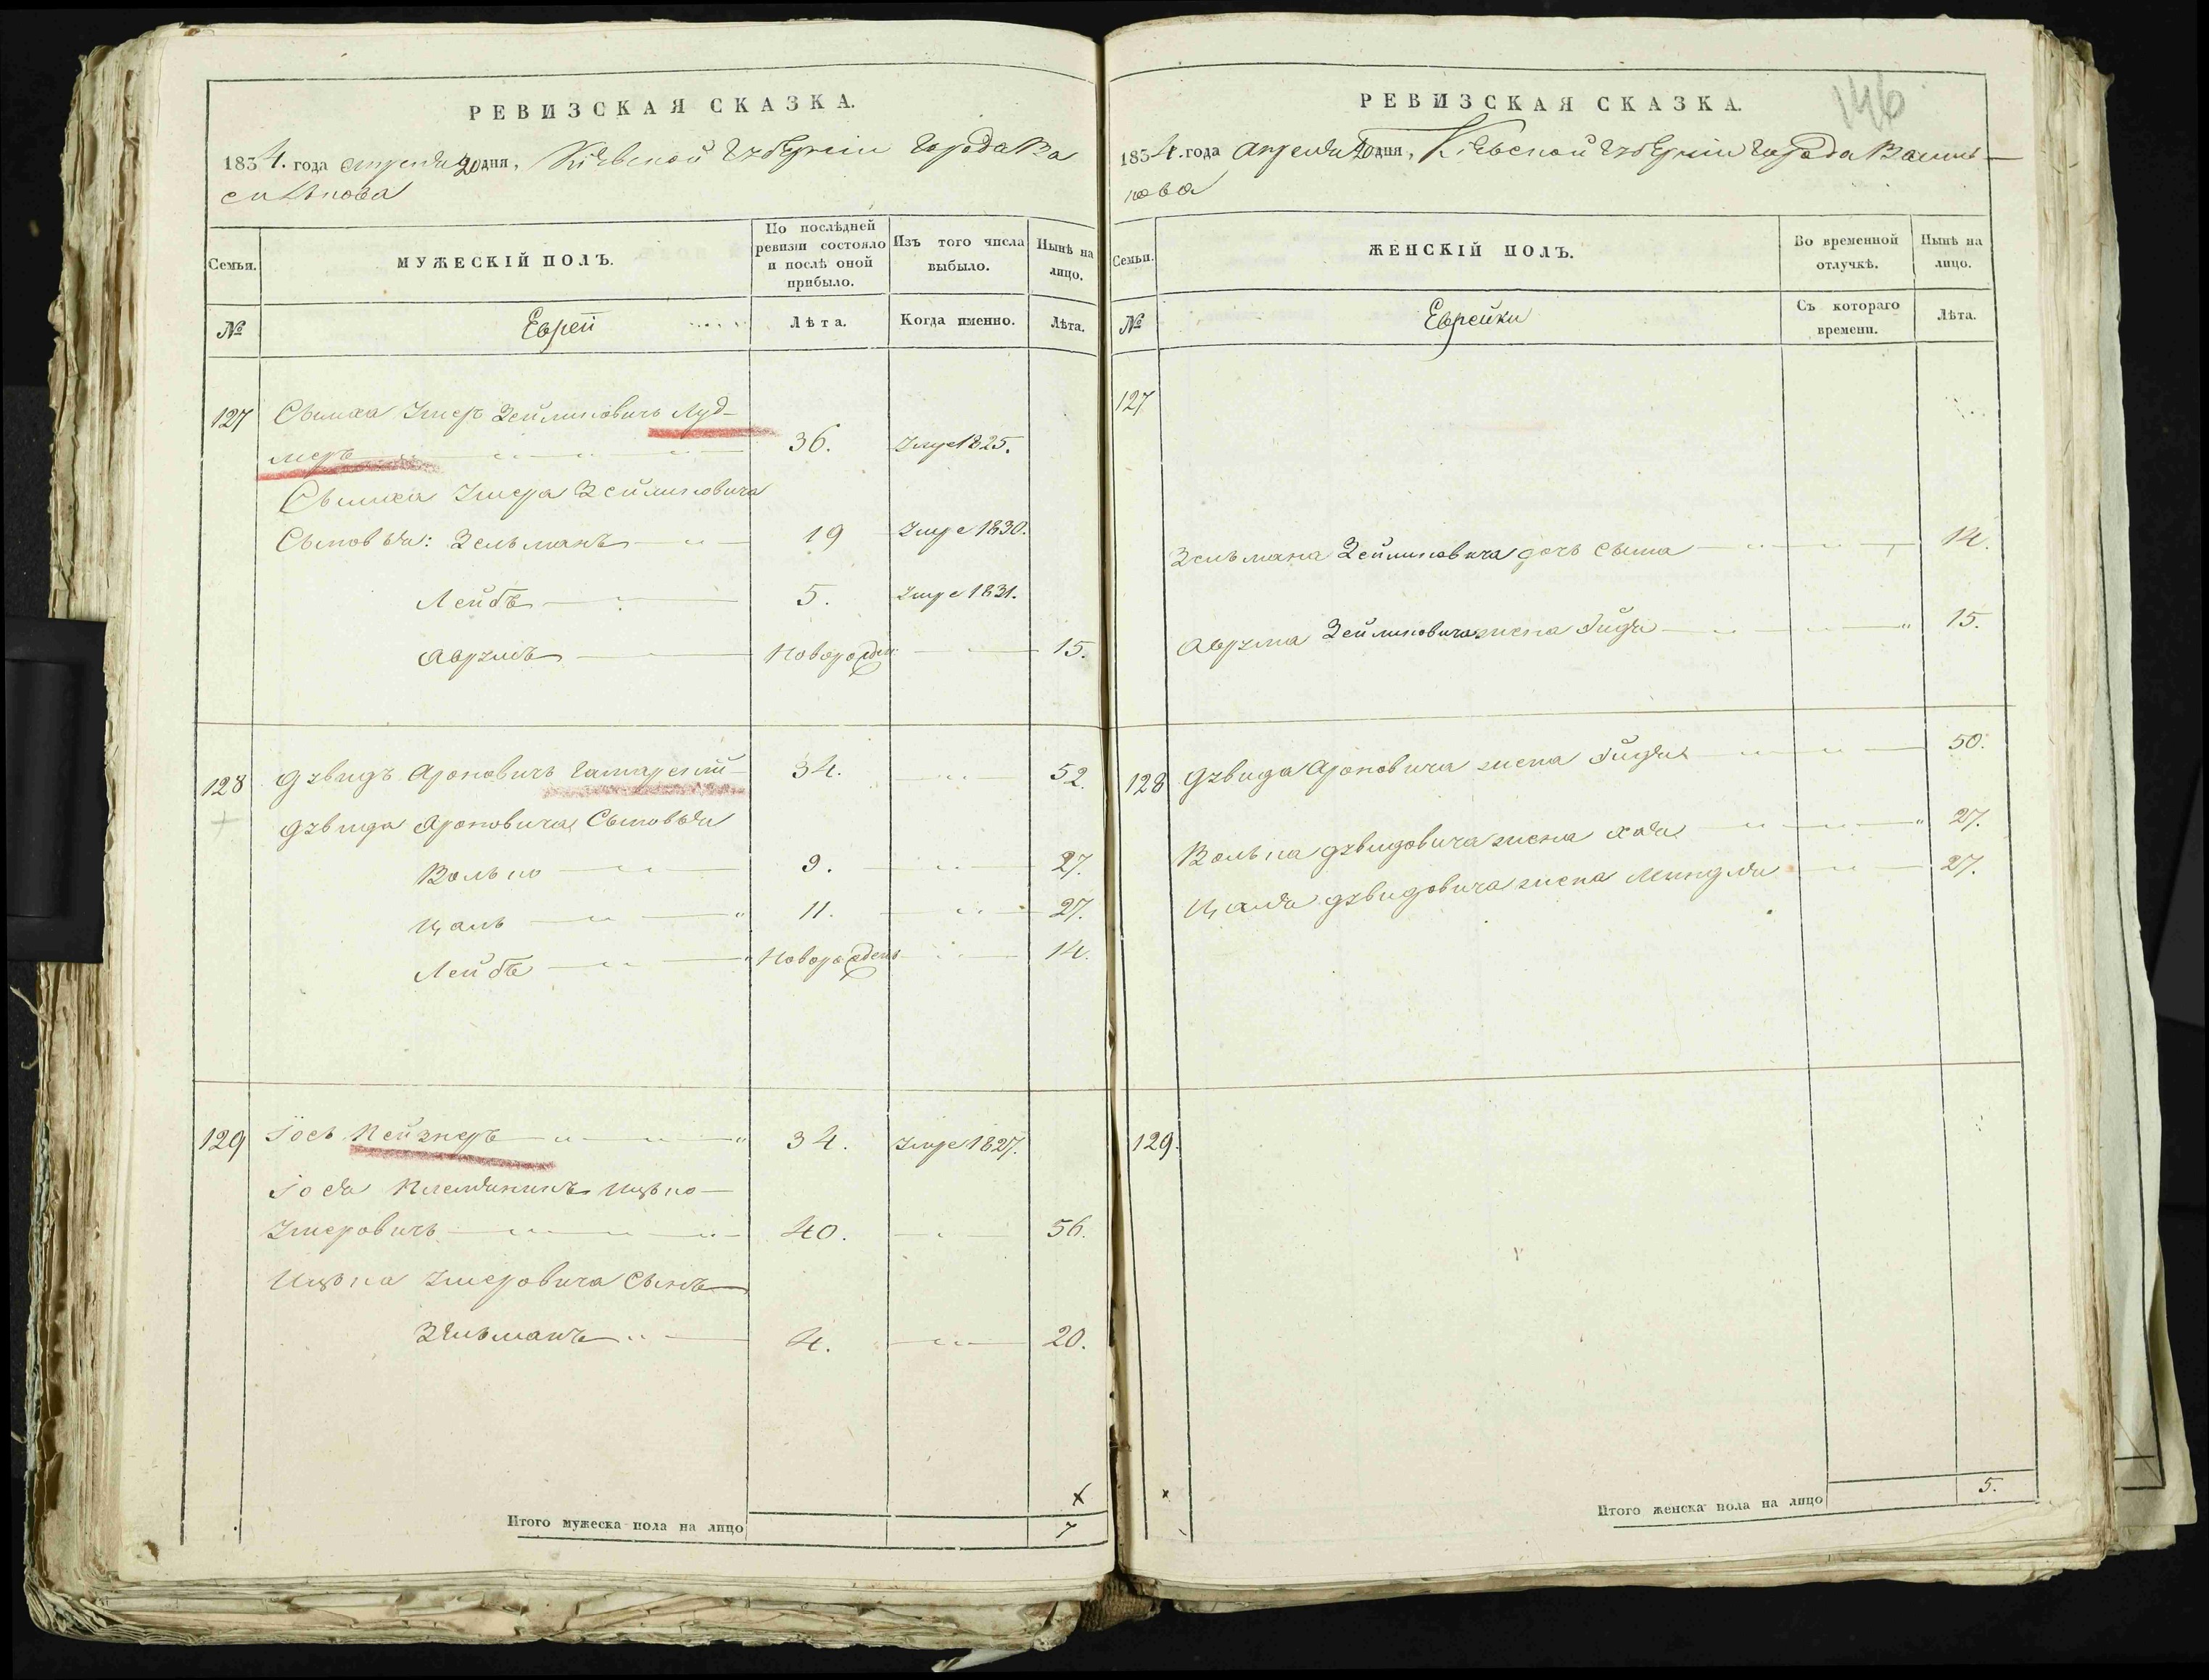 РЕВИЗСКАЯ СКАЗКА.
1834. года апреля 20 дня, Кіевской Губерніи города Ва
силькова
Семьи.
МУЖЕСКІЙ ПОЛЪ.
По послѣдней ревизіи состояло и послѣ оной прибыло.
Изъ того числа выбыло.
Нынѣ на лицо.
№
Еврей
Лѣта.
Когда именно.
Лѣта.
127 Сымха Умер Зейликовичъ Луд-
меръ 36. Умре 1825.
Сымха Умера Зейликовича
Сыновья: Зельманъ 19 Умре 1830.
Лейбъ 5. Умре 1831.
Аврумъ Новорожден: 15.
128 Дувидъ Ароновичъ Татарский 34. 52.
Дувида Ароновича Сыновья
Волько 9. 27.
Цаль 11. 27.
Лейбъ Новорожденъ 14.
129 Іось Пейзнеръ 34. Умре 1827.
Іося Племянникъ Ицько
Умеровичъ 40. 56.
Ицька Умеровича Сынъ
Зельманъ 4. 20.
Итого мужеска пола на лицо 7
РЕВИЗСКАЯ СКАЗКА.
146
1834. года апреля 20 дня, Кіевской Губерніи города Василь-
кова
Семьи.
ЖЕНСКІЙ ПОЛЪ.
Во временной отлучкѣ.
Нынѣ на лицо.
№
Еврейки
Съ котораго времени.
Лѣта.
127
Зельмана Зейликовича дочь Сыма 14.
Аврума Зейликовича жена Гидя 15.
128 Дувида Ароновича жена Гидя 50.
Волька Дувидовича жена Хая 27.
Цаля Дувидовича жена Миндля 27.
129.
Итого женска пола на лицо 5.